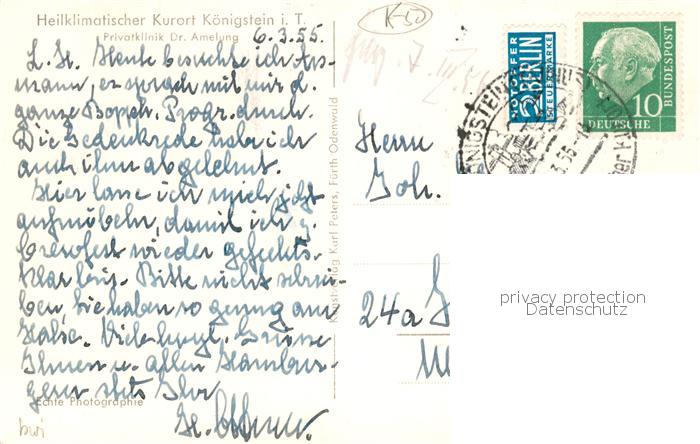 Heilklimatischer Kurort Königstein i. T.
Privatklinik Dr. Amelung
6.3.55.
L. H. Heute besuchte ich Ass-
mann, er sprach mit mir d.
ganze Bopp. Progr. durch.
Die Gedenkrede habe ich
auch ihm abgelehnt.
Hier lasse ich mich jetzt
aufmöbeln, damit ich z.
wieder gefechts-
klar bin. Bitte nicht schrei-
ben, Sie haben so genug am
Halse. Viele Grüsse
Ihnen u. allen Hambur-
gern stets Ihr
Echte Photographie
bwi
Kunstverlag Karl Peters, Fürth Odenwald
K-50
NOTOPFER
2 BERLIN
STEUERMARKE
10
DEUTSCHE
BUNDESPOST
KÖNIGSTEIN
Herrn
Joh.
24a
privacy protection
Datenschutz